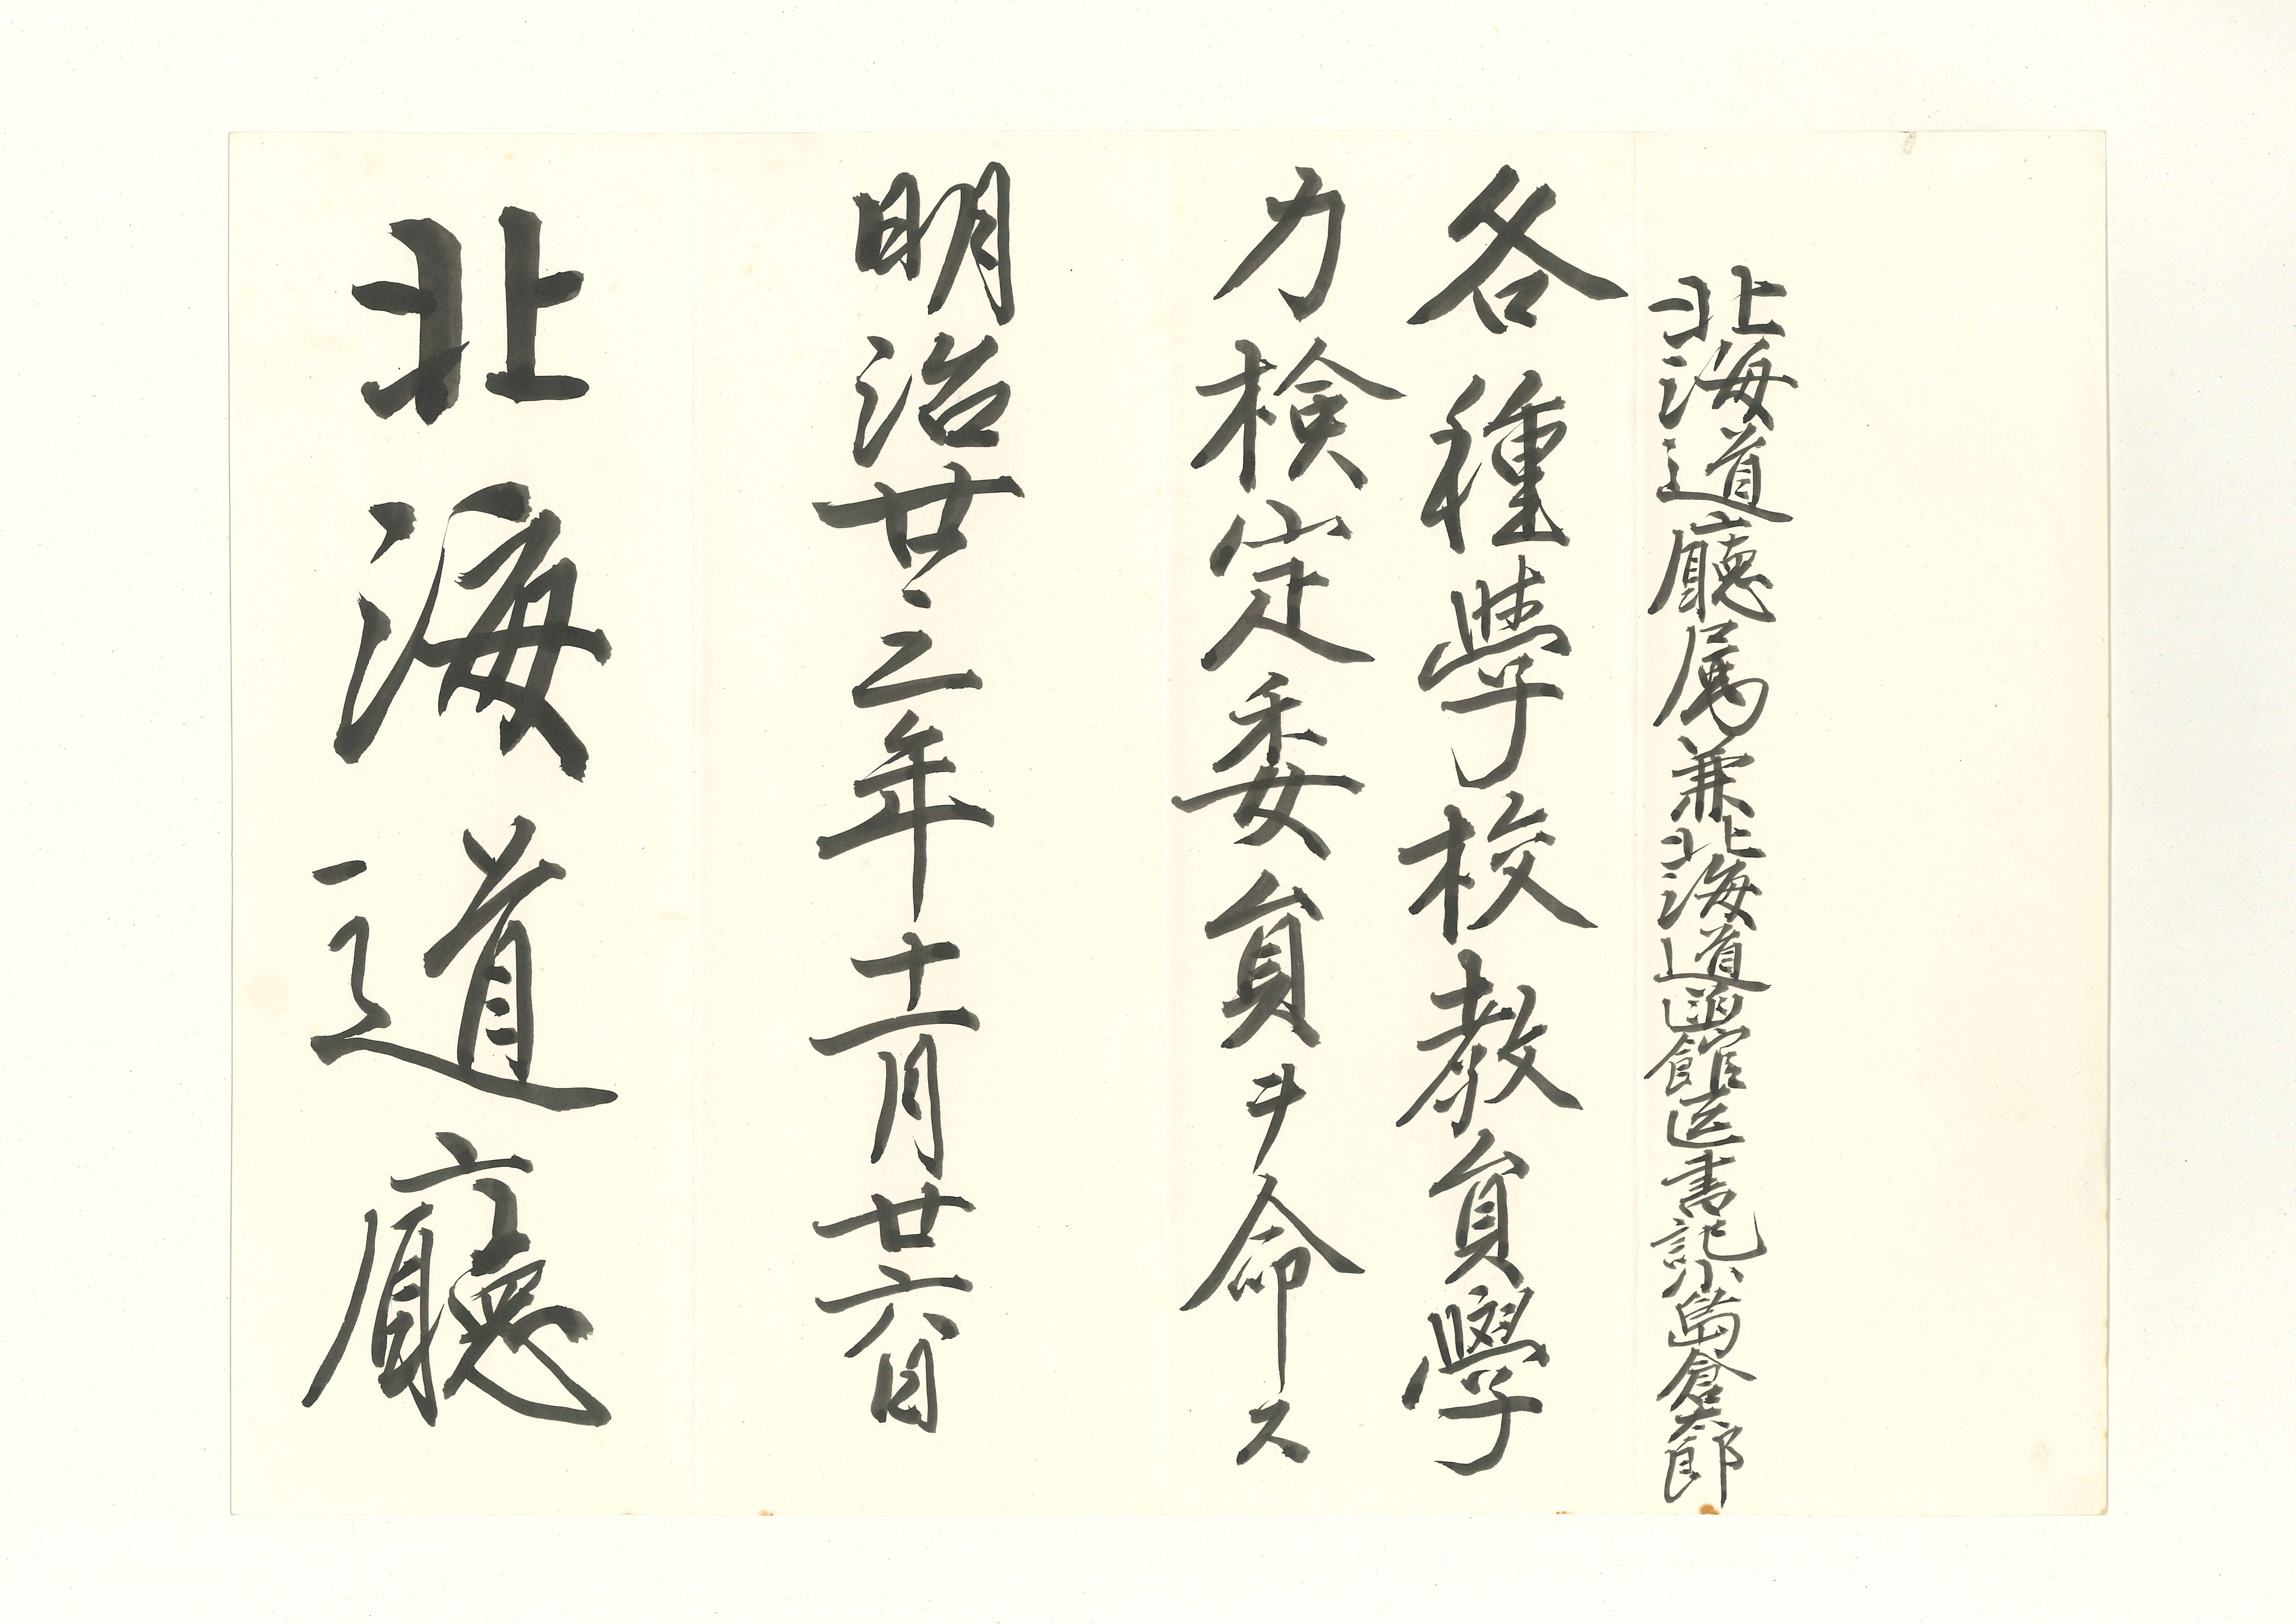 北海道廳属兼北海道函館区書記小島倉太郎
各種學校教員學
力検定委員ヲ命ス
明治廿三年十一月廿六日
北海道廳